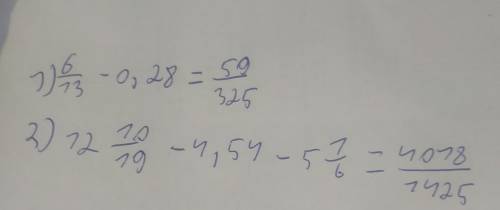 1) 6/13 - 0,28 = 59/325
2) 12 10/19 - 4,54 - 5 1/6 = 4018/1425